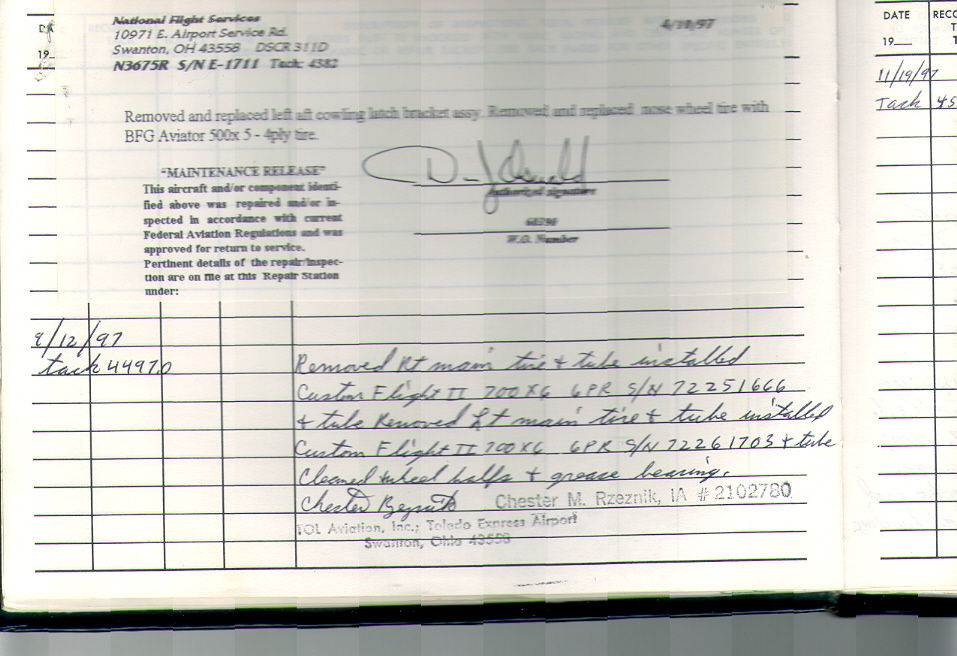 National Flight Services
10971 E. Airport Service Rd.
Swanton, OH 43558 DSCR 311D
N3675R S/N E-1711 Tach: 4382
4/10/97
Removed and replaced left aft cowling latch bracket assy. Removed and replaced nose wheel tire with
BFG Aviator 500x 5 - 4ply tire.
"MAINTENANCE RELEASE"
This aircraft and/or component identi-
fied above was repaired and/or in-
spected in accordance with current
Federal Aviation Regulations and was
approved for return to service.
Pertinent details of the repair/inspec-
tion are on file at this Repair Station
under:
Authorized signature
W.O. Number
19
/12/97
tach 4497.0
Removed Rt main tire & tube installed
Custom Flight II 700X6 6PR S/N 72251666
& tube Removed Lt main tire & tube installed
Custom Flight II 700X6 6PR S/N 72261703 & tube
Cleaned wheel halfs & grease bearing.
Chester M. Rzeznik, IA # 2102780
TOL Aviation, Inc.; Toledo Express Airport
Swanton, Ohio 43558
DATE
19
RECO
T
T
11/19/97
Tach 45